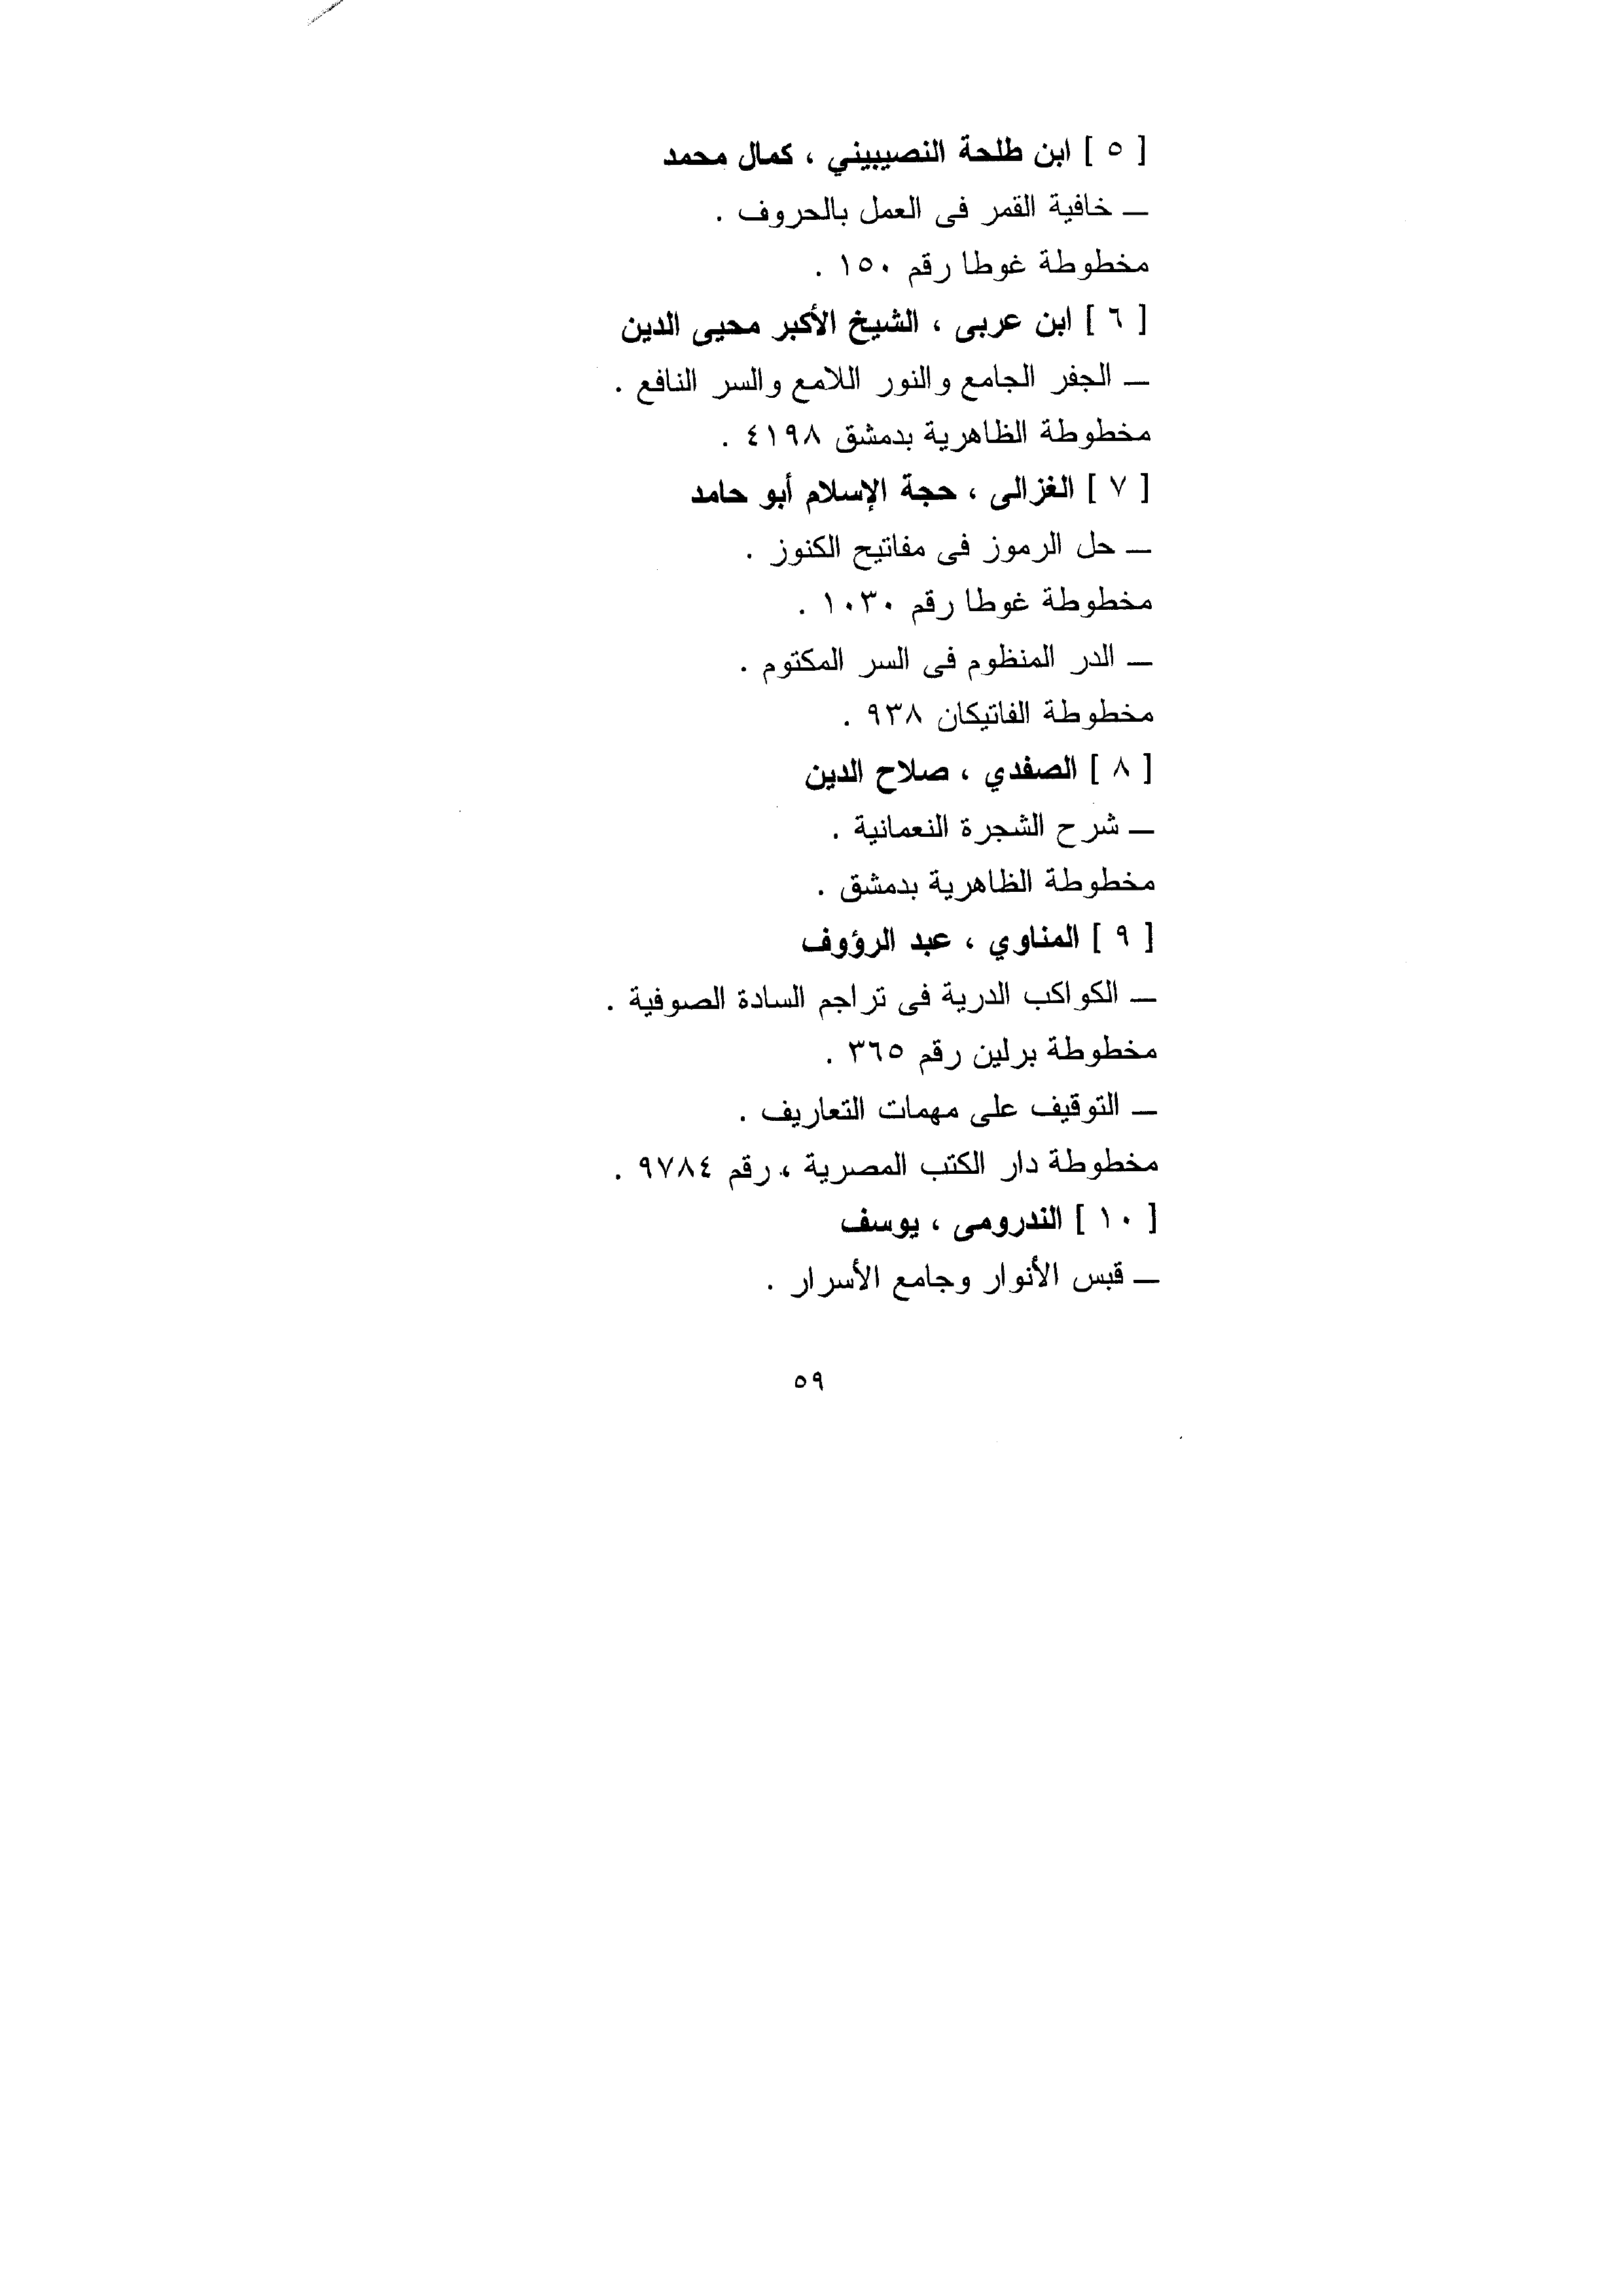 [ ٥ ] ابن طلحة النصيبيني ، كمال محمد
ــ خافية القمر فى العمل بالحروف .
مخطوطة غوطا رقم ١٥٠ .
[ ٦ ] ابن عربى ، الشيخ الأكبر محيى الدين
ــ الجفر الجامع والنور اللامع والسر النافع .
مخطوطة الظاهرية بدمشق ٤١٩٨ .
[ ٧ ] الغزالى ، حجة الإسلام أبو حامد
ــ حل الرموز فى مفاتيح الكنوز .
مخطوطة غوطا رقم ١٠٣٠ .
ــ الدر المنظوم فى السر المكتوم .
مخطوطة الفاتيكان ٩٣٨ .
[ ٨ ] الصفدي ، صلاح الدين
ــ شرح الشجرة النعمانية .
مخطوطة الظاهرية بدمشق .
[ ٩ ] المناوي ، عبد الرؤوف
ــ الكواكب الدرية فى تراجم السادة الصوفية .
مخطوطة برلين رقم ٣٦٥ .
ــ التوقيف على مهمات التعاريف .
مخطوطة دار الكتب المصرية ، رقم ٩٧٨٤ .
[ ١٠ ] الندرومى ، يوسف
ــ قبس الأنوار وجامع الأسرار .
٥٩